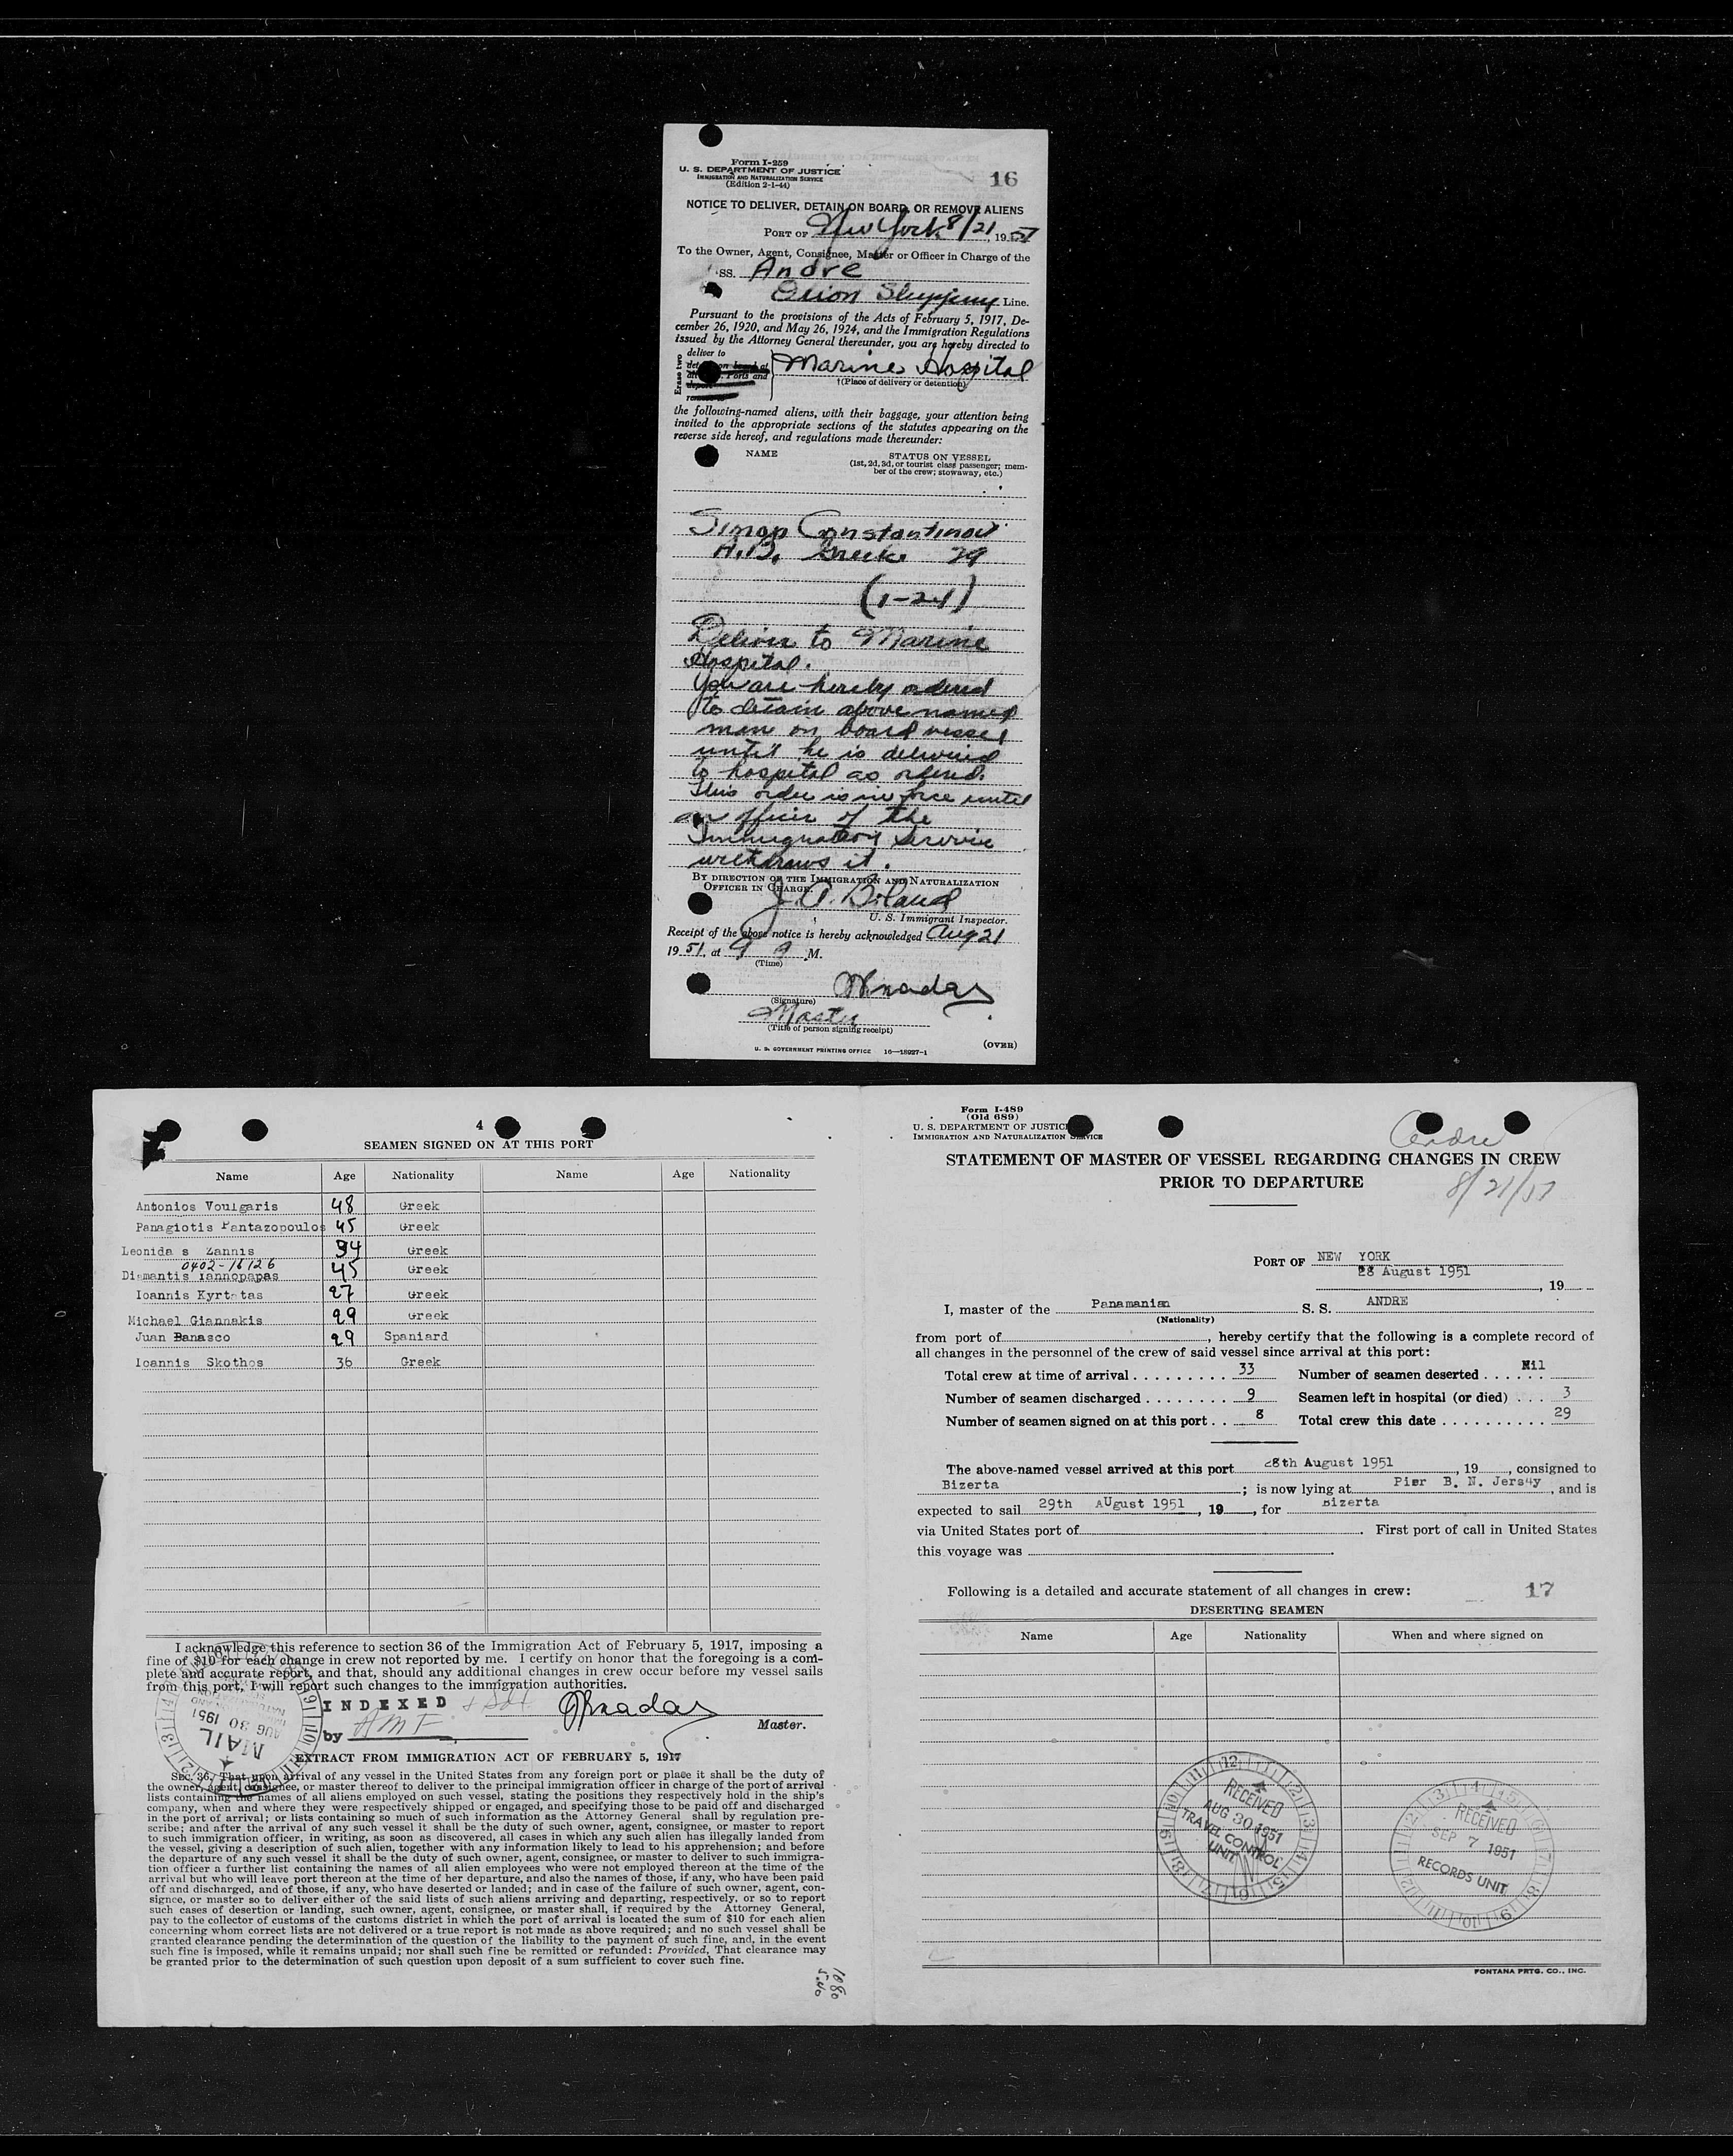 Form I-259
U. S. DEPARTMENT OF JUSTICE
IMMIGRATION AND NATURALIZATION SERVICE
(Edition 2-1-44)
16
NOTICE TO DELIVER, DETAIN ON BOARD, OR REMOVE ALIENS
PORT OF New York 8/21, 1951
To the Owner, Agent, Consignee, Master or Officer in Charge of the
SS. Andre
Orion Shipping Line.
Pursuant to the provisions of the Acts of February 5, 1917, De-
cember 26, 1920, and May 26, 1924, and the Immigration Regulations
issued by the Attorney General thereunder, you are hereby directed to
Erase two
deliver to
on board at
Ports and
Marine Hospital
†(Place of delivery or detention)
the following-named aliens, with their baggage, your attention being
invited to the appropriate sections of the statutes appearing on the
reverse side hereof, and regulations made thereunder:
NAME
STATUS ON VESSEL
(1st, 2d, 3d, or tourist class passenger; mem-
ber of the crew; stowaway, etc.)
Constantinou
A.B. Greek 29
(1-24)
Deliver to Marine
Hospital.
You are hereby ordered
to detain above named
man on board vessel
until he is delivered
to hospital as ordered.
This order is in force until
an officer of the
Immigration Service
withdraws it.
BY DIRECTION OF THE IMMIGRATION AND NATURALIZATION
OFFICER IN CHARGE.
U. S. Immigrant Inspector.
Receipt of the above notice is hereby acknowledged Aug 21
1951, at 9 a M.
(Time)
(Signature)
Master
(Title of person signing receipt)
U. S. GOVERNMENT PRINTING OFFICE 16—18927-1
(OVER)
4
SEAMEN SIGNED ON AT THIS PORT
Name Age Nationality Name Age Nationality
Antonios Voulgaris 48 Greek
Panagiotis Pantazopoulos 45 Greek
Leonida s Zannis 34 Greek
0402-16126
Diamantis Iannopapas 45 Greek
Ioannis Kyrtatas 27 Greek
Michael Giannakis 29 Greek
Juan Banasco 29 Spaniard
Ioannis Skothos 36 Greek
I acknowledge this reference to section 36 of the Immigration Act of February 5, 1917, imposing a
fine of $10 for each change in crew not reported by me. I certify on honor that the foregoing is a com-
plete and accurate report, and that, should any additional changes in crew occur before my vessel sails
from this port, I will report such changes to the immigration authorities.
INDEXED
by AMF
Master.
MAIL
AUG 30 1951
EXTRACT FROM IMMIGRATION ACT OF FEBRUARY 5, 1917
SEC. 36. That upon arrival of any vessel in the United States from any foreign port or place it shall be the duty of
the owner, agent, consignee, or master thereof to deliver to the principal immigration officer in charge of the port of arrival
lists containing the names of all aliens employed on such vessel, stating the positions they respectively hold in the ship's
company, when and where they were respectively shipped or engaged, and specifying those to be paid off and discharged
in the port of arrival; or lists containing so much of such information as the Attorney General shall by regulation pre-
scribe; and after the arrival of any such vessel it shall be the duty of such owner, agent, consignee, or master to report
to such immigration officer, in writing, as soon as discovered, all cases in which any such alien has illegally landed from
the vessel, giving a description of such alien, together with any information likely to lead to his apprehension; and before
the departure of any such vessel it shall be the duty of such owner, agent, consignee, or master to deliver to such immigra-
tion officer a further list containing the names of all alien employees who were not employed thereon at the time of the
arrival but who will leave port thereon at the time of her departure, and also the names of those, if any, who have been paid
off and discharged, and of those, if any, who have deserted or landed; and in case of the failure of such owner, agent, con-
signee, or master so to deliver either of the said lists of such aliens arriving and departing, respectively, or so to report
such cases of desertion or landing, such owner, agent, consignee, or master shall, if required by the Attorney General,
pay to the collector of customs of the customs district in which the port of arrival is located the sum of $10 for each alien
concerning whom correct lists are not delivered or a true report is not made as above required; and no such vessel shall be
granted clearance pending the determination of the question of the liability to the payment of such fine, and, in the event
such fine is imposed, while it remains unpaid; nor shall such fine be remitted or refunded: Provided, That clearance may
be granted prior to the determination of such question upon deposit of a sum sufficient to cover such fine.
Form I-489
(Old 689)
U. S. DEPARTMENT OF JUSTICE
IMMIGRATION AND NATURALIZATION SERVICE
Andre
STATEMENT OF MASTER OF VESSEL REGARDING CHANGES IN CREW
PRIOR TO DEPARTURE
8/21/51
PORT OF NEW YORK
28 August 1951, 19
I, master of the Panamanian S. S. ANDRE
(Nationality)
from port of, hereby certify that the following is a complete record of
all changes in the personnel of the crew of said vessel since arrival at this port:
Total crew at time of arrival 33 Number of seamen deserted Nil
Number of seamen discharged 9 Seamen left in hospital (or died) 3
Number of seamen signed on at this port 8 Total crew this date 29
The above-named vessel arrived at this port 28th August 1951, 19, consigned to
Bizerta; is now lying at Pier B. N. Jersey, and is
expected to sail 29th AUgust 1951, 19, for Bizerta
via United States port of. First port of call in United States
this voyage was
Following is a detailed and accurate statement of all changes in crew:
17
DESERTING SEAMEN
Name Age Nationality When and where signed on
RECEIVED
AUG 30 1951
TRAVEL CONTROL
UNIT
RECEIVED
SEP 7 1951
RECORDS UNIT
FONTANA PRTG. CO., INC.